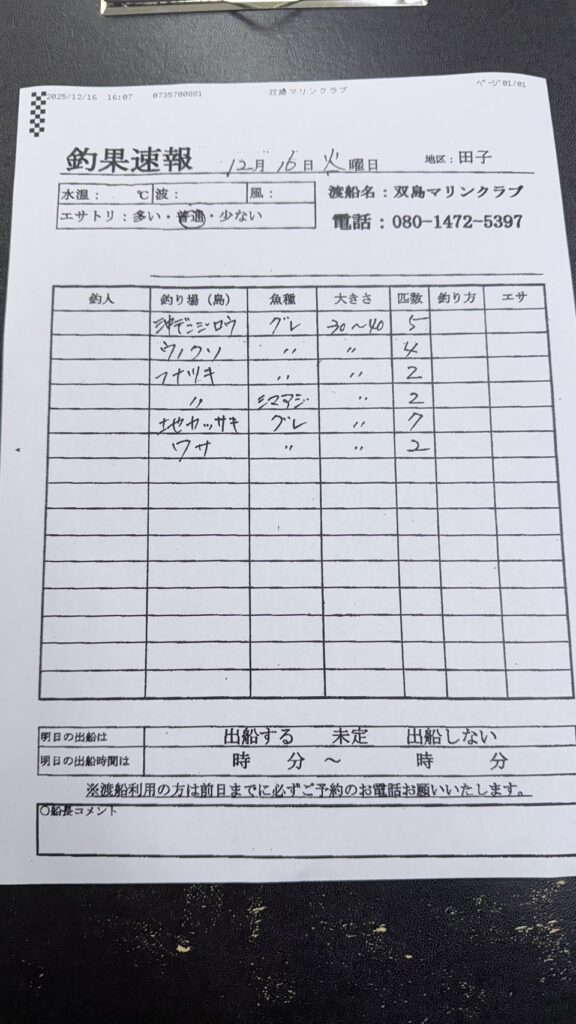 2025/12/16 16:07 0735700881 双島マリンクラブ ページ 01/01
釣果速報 12月16日 火曜日 地区：田子
水温： ℃ 波： 風：
エサトリ：多い・普通・少ない
渡船名：双島マリンクラブ
電話：080-1472-5397
釣人 釣り場（島） 魚種 大きさ 匹数 釣り方 エサ
沖デンジロウ グレ 30～40 5
ウノクソ 〃 〃 4
フナツキ 〃 〃 2
〃 シマアジ 〃 2
地カッサキ グレ 〃 7
ワサ 〃 〃 2
明日の出船は 出船する 未定 出船しない
明日の出船時間は 時 分 ～ 時 分
※渡船利用の方は前日までに必ずご予約のお電話お願いいたします。
○船長コメント